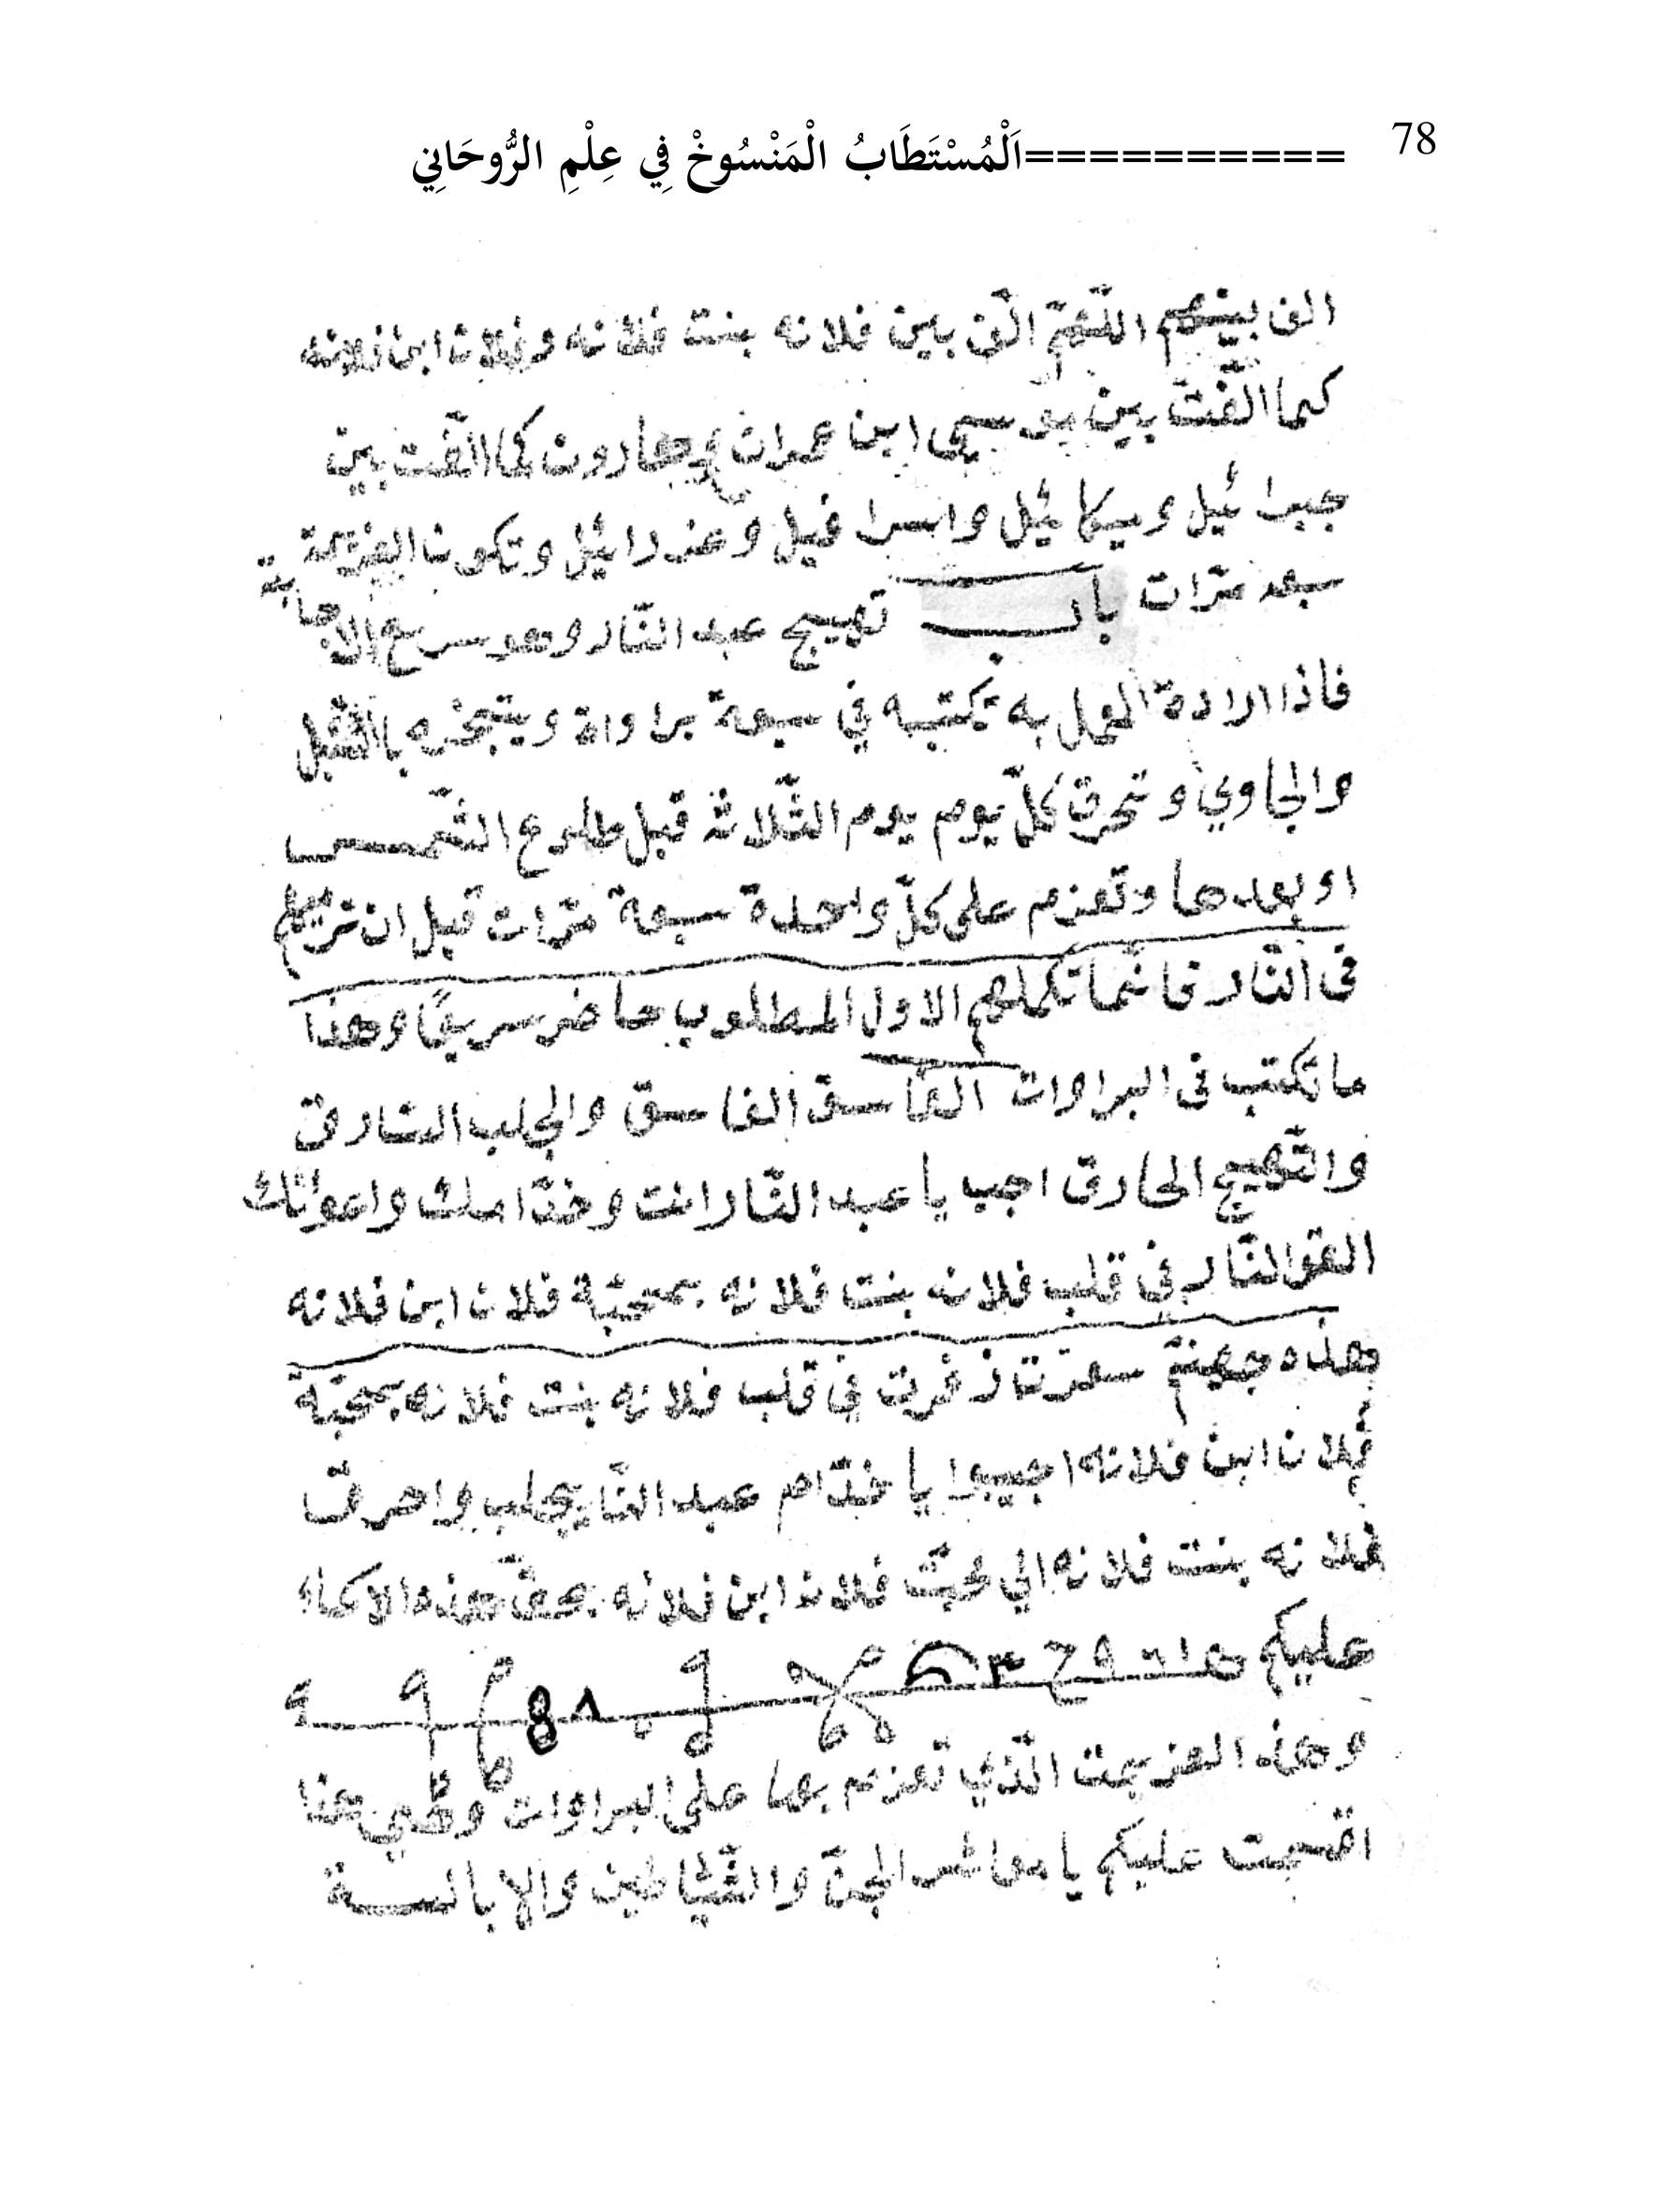 78
==========اَلْمُسْتَطَابُ الْمَنْسُوخْ فِي عِلْمِ الرُّوحَانِي
الف بينهم اللّهمّ الّف بين فلانه بنت فلانه وفلان ابن فلانه
كما الّفت بين موسى ابن عمران وهارون كما الّفت بين
جبرائيل وميكائيل واسرافيل وعزرائيل وتكون العزيمة
سبعه مرّات باب تهييج عبد النّار وهو سريع الاجابة
فاذا ارادة العمل به تكتبه في سبعة براواة ويتبخّره بالمقل
والجاوي وتحرق كلّ يوم يوم الثّلاثة قبل طلوع الشّمس
او بعدها وتعزم على كلّ واحدة سبعة مرّات قبل ان ترميهم
في النّار فانّما تكملهم الاول المطلوب حاضر سريعًا وهذا
ما تكتب في البراوات الفاسق والجلب السّارق
والتّهييج الحارق اجب يا عبد النّار انت وخدّامك واعوانك
القو النّار في قلب فلانه بنت فلانه بمحبّة فلان ابن فلانه
بهذه جهنّم سعرت زفرت في قلب فلانه بنت فلانه بمحبّة
فلان ابن فلانه اجيبوا يا خدّام عبد النّار بجلب واحرق
فلانه بنت فلانه الي محبّت فلان ابن فلانه بحقّ هذه الاسماء
عليكم
وهذه العزيمت الّذي تعزم بها على البراوات وهي هذا
اقسمت عليكم يا معاشر الجنّ والشّياطين والابالسة